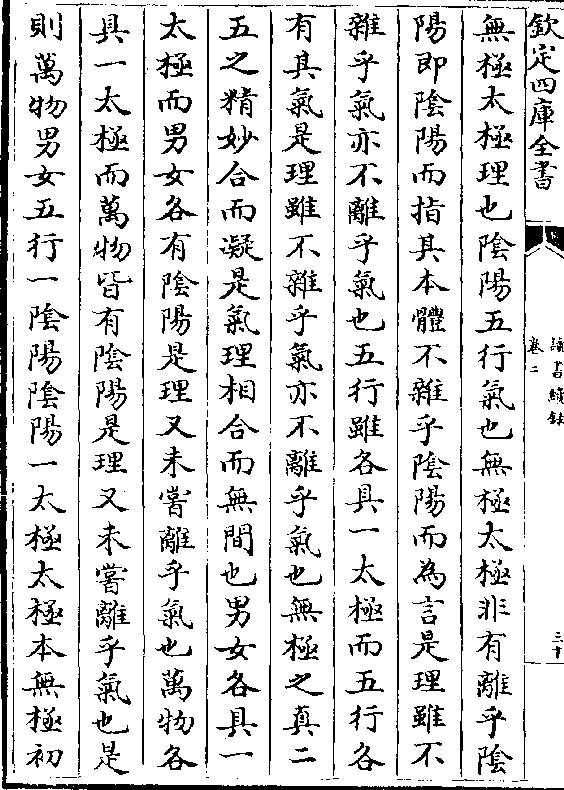 欽定四庫全書
讀書續錄
卷二
三十
無極太極理也陰陽五行氣也無極太極非有離乎陰
陽即陰陽而指其本體不雜乎陰陽而為言是理雖不
雜乎氣亦不離乎氣也五行雖各具一太極而五行各
有其氣是理雖不雜乎氣亦不離乎氣也無極之真二
五之精妙合而凝是氣理相合而無間也男女各具一
太極而男女各有陰陽是理又未嘗離乎氣也萬物各
具一太極而萬物皆有陰陽是理又未嘗離乎氣也是
則萬物男女五行一陰陽陰陽一太極太極本無極初